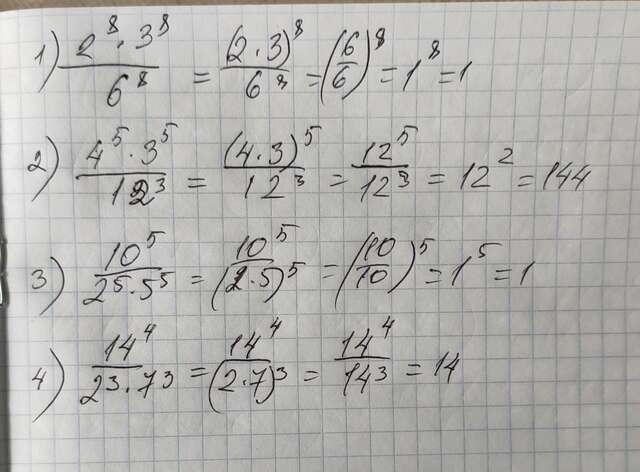 1) 2⁸·3⁸/6⁸ = (2·3)⁸/6⁸ = (6/6)⁸ = 1⁸ = 1
2) 4⁵·3⁵/12³ = (4·3)⁵/12³ = 12⁵/12³ = 12² = 144
3) 10⁵/2⁵·5⁵ = 10⁵/(2·5)⁵ = (10/10)⁵ = 1⁵ = 1
4) 14⁴/2³·7³ = 14⁴/(2·7)³ = 14⁴/14³ = 14